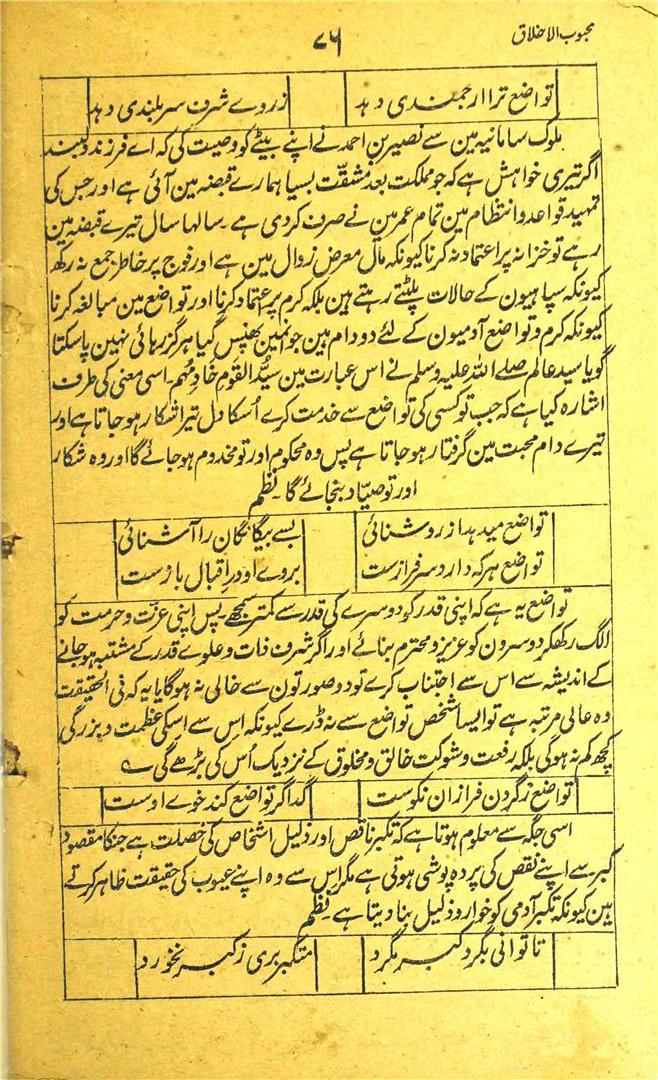 محبوب الاخلاق
۷۶
تواضع ترا ارجمندی دہد
زروے شرف سر بلندی دہد
ملوک سامانیہ مین سے نصیر بن احمد نے اپنے بیٹے کو وصیت کی کہ اے فرزند دلبند
اگر تیری خواہش ہے کہ جو مملکت بعد مشقّت بسیار ہمارے قبضہ مین آئی ہے اور جس کی
تمہید قواعد و انتظام مین تمام عمر مین نے صرف کردی ہے۔ سالہا سال تیرے قبضہ مین
رہے تو خزانہ پر اعتماد نہ کرنا کیونکہ مال معرض زوال مین ہے اور فوج پر خاطر جمع نہ رکھ
کیونکہ سپاہیون کے حالات پلٹتے رہتے ہین بلکہ کرم پر اعتماد کرنا اور تواضع مین مبالغہ کرنا
کیونکہ کرم و تواضع آدمیون کے لئے دو دام ہین جو انمین پھنس گیا ہرگز رہائی نہین پاسکتا
گویا سید عالم صلے اللہ علیہ وسلم نے اس عبارت مین سیّد القوم خادمہم۔ اسی معنی کی طرف
اشارہ کیا ہے کہ جب تو کسی کی تواضع سے خدمت کرے اُسکا دل تیرا شکار ہوجاتا ہے اور
تیرے دام محبت مین گرفتار ہوجاتا ہے پس وہ محکوم اور تو مخدوم ہوجائے گا اور وہ شکار
اور تو صیّاد بنجائے گا۔ نظم
تواضع میدہد از روشنائی
بسے بیگانگان را آشنائی
تواضع ہرکہ دارد سرفرازست
بروے او در اقبال بازست
تواضع یہ ہے کہ اپنی قدر کو دوسرے کی قدر سے کمتر سمجھے۔ پس اپنی عزّت و حرمت کو
الگ رکھکر دوسرون کو عزیز و محترم بنائے اور اگر شرف ذات و علوے قدر کے مشتبہ ہوجانے
کے اندیشہ سے اس سے اجتناب کرے تو دو صورتون سے خالی نہ ہوگا یا یہ کہ فی الحقیقت
وہ عالی مرتبہ ہے تو ایسا شخص تواضع سے نہ ڈرے کیونکہ اس سے اسکی عظمت و بزرگی
کچھ کم نہ ہوگی بلکہ رفعت و شوکت خالق و مخلوق کے نزدیک اُس کی بڑھے گی ؎
تواضع ز گردن فرازان نکوست
گدا گر تواضع کند خوے اوست
اسی جگہ سے معلوم ہوتا ہے کہ تکبر ناقص اور ذلیل اشخاص کی خصلت ہے جنکا مقصود
کبر سے اپنے نقص کی پردہ پوشی ہوتی ہے مگر اس سے وہ اپنے عیوب کی حقیقت ظاہر کرتے
ہین کیونکہ تکبر آدمی کو خوار و ذلیل بنا دیتا ہے۔ نظم
تا توانی بگرد کبر مگرد
متکبر بری ز کبر نخورد